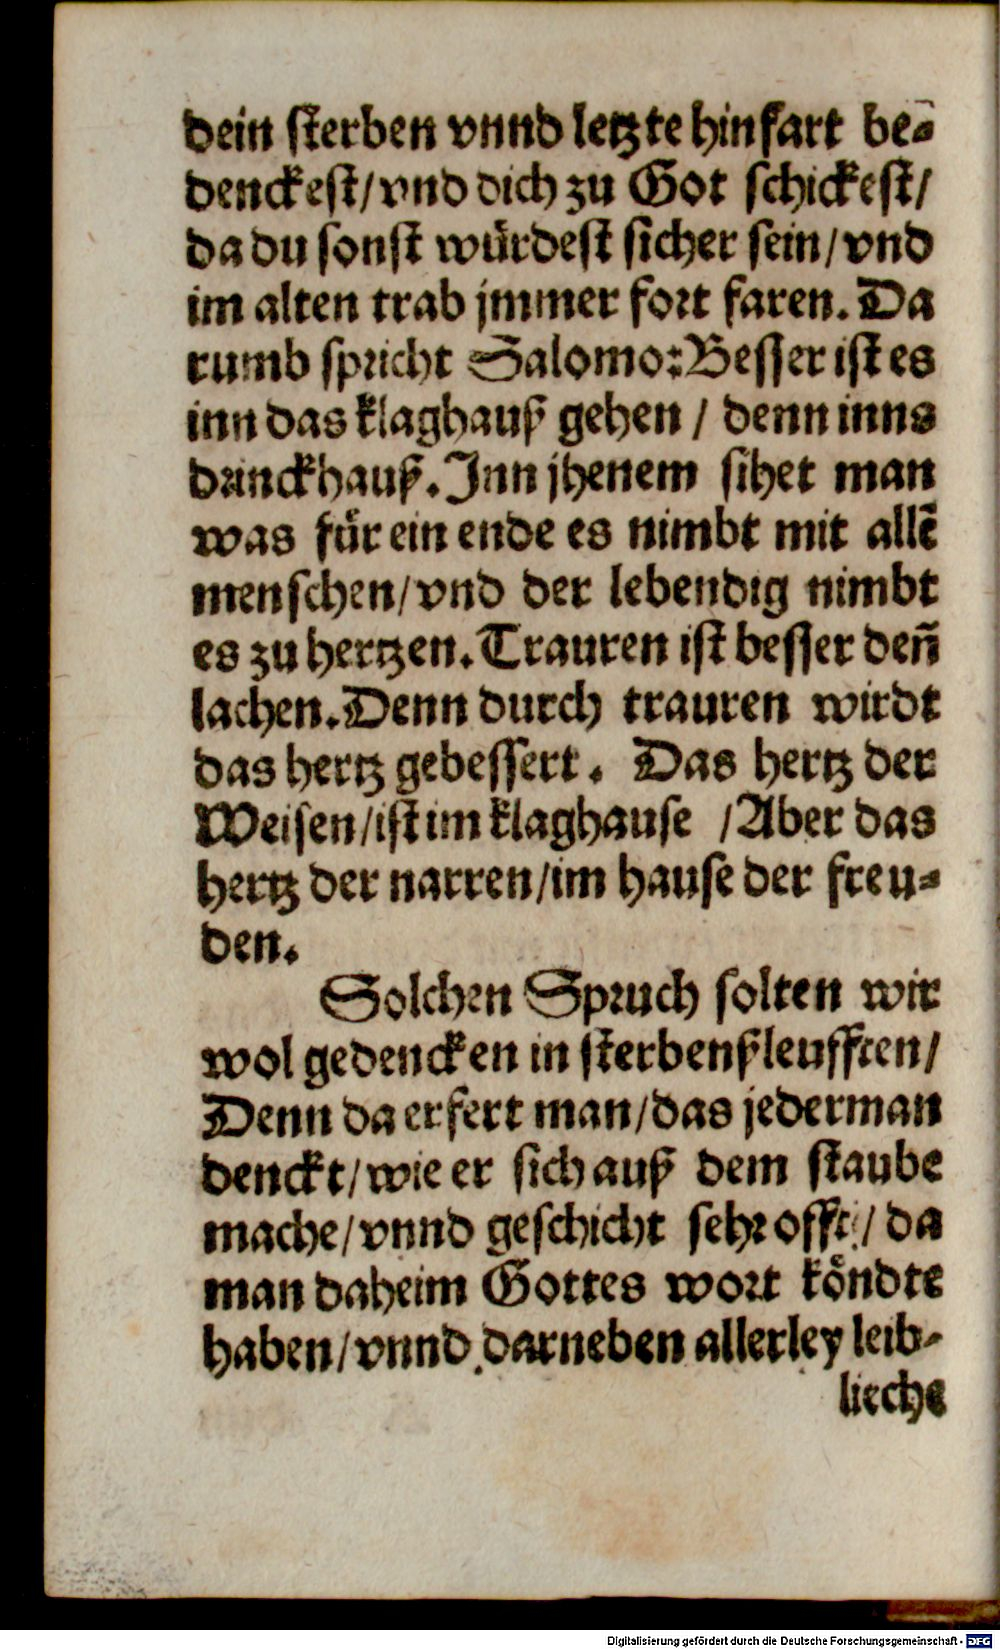 dein ſterben vnnd letzte hinfart be⸗
denckeſt/ vnd dich zu Got ſchickeſt/
da du ſonſt würdeſt ſicher ſein/ vnd
im alten trab jmmer fort faren. Da
rumb ſpricht Salomo: Beſſer iſt es
inn das klaghauß gehen / denn inns
drinckhauß. Inn jhenem ſihet man
was für ein ende es nimbt mit allẽ
menſchen/ vnd der lebendig nimbt
es zu hertzen. Trauren iſt beſſer deñ
lachen. Denn durch trauren wirdt
das hertz gebeſſert. Das hertz der
Weiſen/ iſt im klaghauſe /Aber das
hertz der narren/ im hauſe der freu⸗
den.
Solchen Spruch ſolten wir
wol gedencken in ſterbenßleufften/
Denn da erfert man/ das jederman
denckt/ wie er ſich auß dem ſtaube
mache/ vnnd geſchicht ſehr offt/ da
man daheim Gottes wort köndte
haben/ vnnd darneben allerley leib⸗
lieche
Digitalisierung gefördert durch die Deutsche Forschungsgemeinschaft - DFG